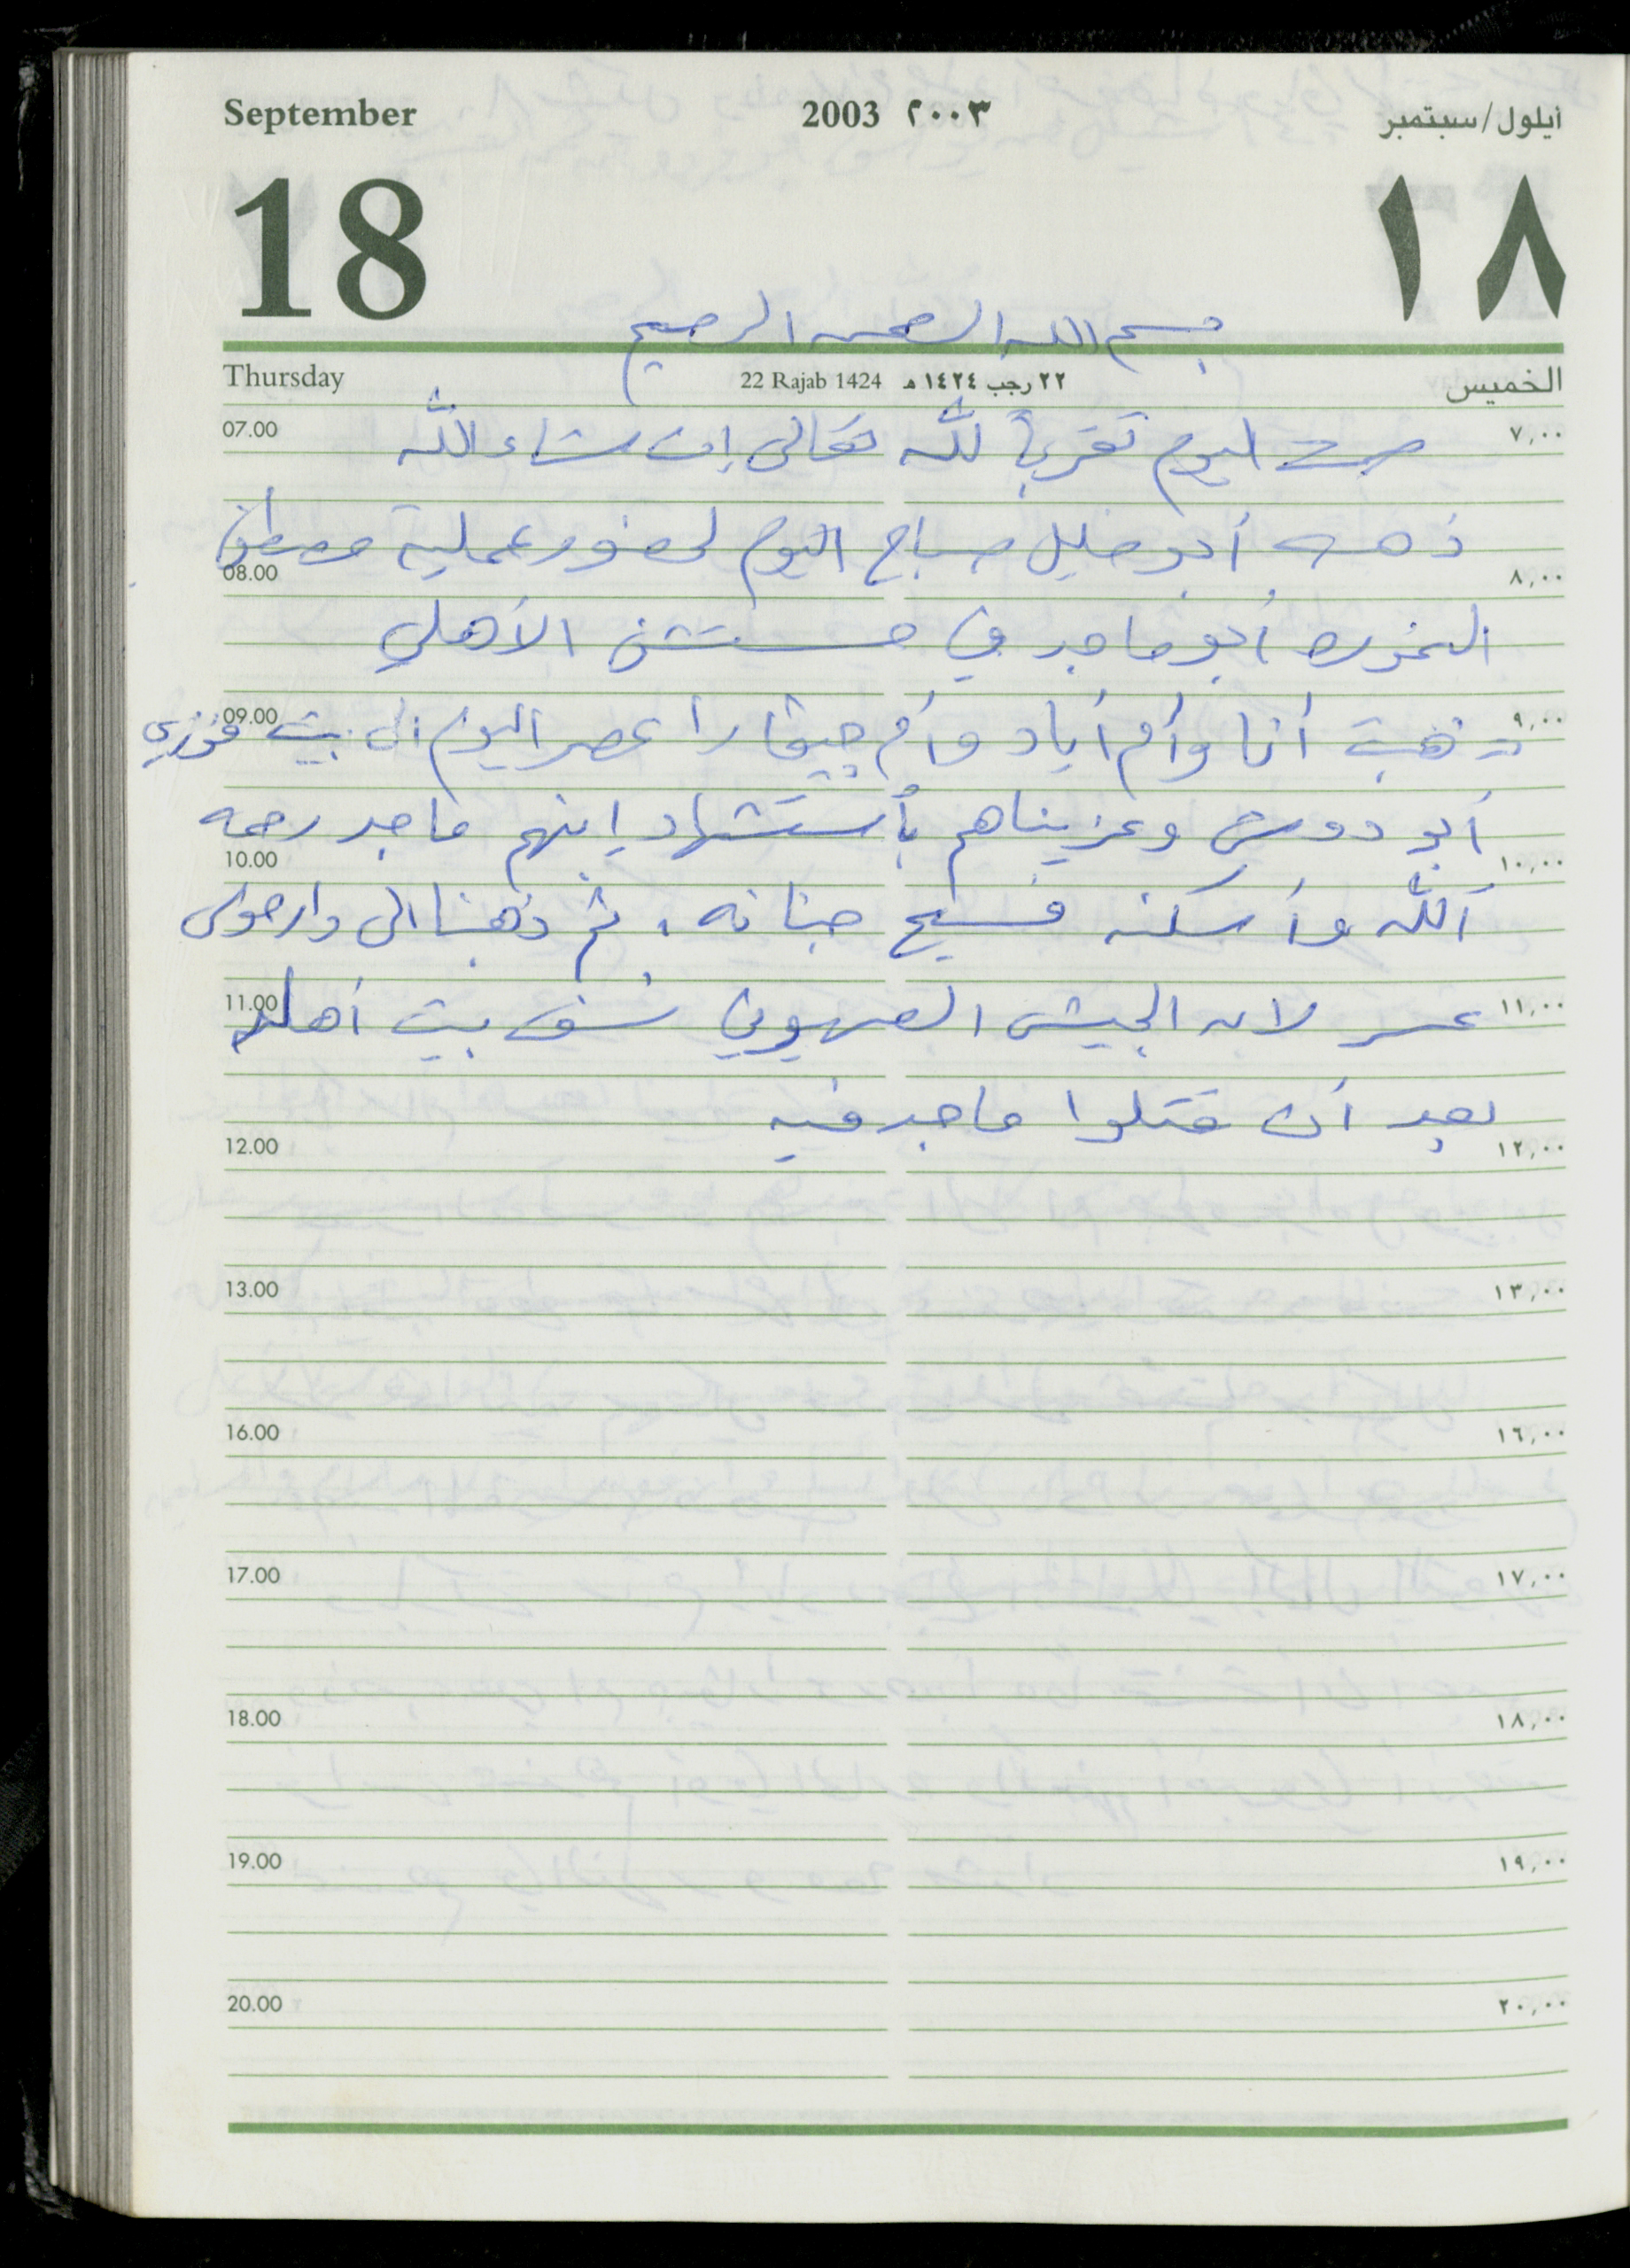 September 2003 ٢٠٠٣ أيلول/سبتمبر
18 ١٨
بسم الله الرحمن الرحيم
Thursday 22 Rajab 1424 ٢٢ رجب ١٤٢٤ هـ الخميس
07.00 صمت اليوم تقرباً لله تعالى إن شاء الله ٧,٠٠
ذهب أبو خليل صباح اليوم لحضور عملية مصطفى
08.00 ٨,٠٠
أبو ماجد في مستشفى الأهلي
09.00 ذهبت أنا وأم أياد وأم جيفارا عصر اليوم الى بيت فوزي ٩,٠٠
أبو دوش وعزيناهم بأستشهاد إبنهم ماجد رحمه
10.00 ١٠,٠٠
الله وأسكنه فسيح جناته، ثم ذهبنا الى دار موسى
11.00 لان الجيش الصهيوني نسف بيت أهله ١١,٠٠
بعد أن قتلوا ماجد فيه
12.00 ١٢,٠٠
13.00 ١٣,٠٠
16.00 ١٦,٠٠
17.00 ١٧,٠٠
18.00 ١٨,٠٠
19.00 ١٩,٠٠
20.00 ٢٠,٠٠